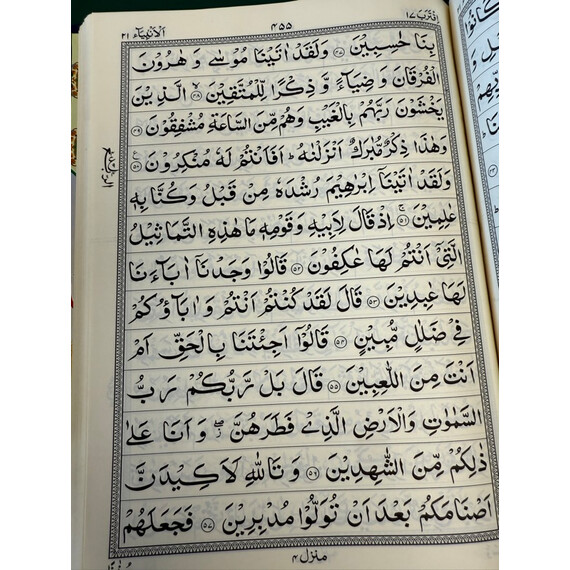 اقترب ١٧ ٤٥٥ الانبياء ٢١
بِنَا حٰسِبِيْنَ ﴿۴۷﴾ وَلَقَدْ اٰتَيْنَا مُوْسٰى وَ هٰرُوْنَ
الْفُرْقَانَ وَ ضِيَآءً وَّ ذِكْرًا لِّلْمُتَّقِيْنَ ﴿۴۸﴾ۙ الَّذِيْنَ
يَخْشَوْنَ رَبَّهُمْ بِالْغَيْبِ وَهُمْ مِّنَ السَّاعَةِ مُشْفِقُوْنَ ﴿۴۹﴾
وَهٰذَا ذِكْرٌ مُّبٰرَكٌ اَنْزَلْنٰهُ ؕ اَفَاَنْتُمْ لَهٗ مُنْكِرُوْنَ ﴿۵۰﴾
وَلَقَدْ اٰتَيْنَا اِبْرٰهِيْمَ رُشْدَهٗ مِنْ قَبْلُ وَكُنَّا بِهٖ
عٰلِمِيْنَ ﴿۵۱﴾ۚ اِذْ قَالَ لِاَبِيْهِ وَقَوْمِهٖ مَا هٰذِهِ التَّمَاثِيْلُ
الَّتِيْۤ اَنْتُمْ لَهَا عٰكِفُوْنَ ﴿۵۲﴾ قَالُوْا وَجَدْنَاۤ اٰبَآءَنَا
لَهَا عٰبِدِيْنَ ﴿۵۳﴾ قَالَ لَقَدْ كُنْتُمْ اَنْتُمْ وَ اٰبَآؤُكُمْ
فِيْ ضَلٰلٍ مُّبِيْنٍ ﴿۵۴﴾ قَالُوْۤا اَجِئْتَنَا بِالْحَقِّ اَمْ
اَنْتَ مِنَ اللّٰعِبِيْنَ ﴿۵۵﴾ قَالَ بَلْ رَّبُّكُمْ رَبُّ
السَّمٰوٰتِ وَالْاَرْضِ الَّذِيْ فَطَرَهُنَّ ۖ٘ وَ اَنَا عَلٰى
ذٰلِكُمْ مِّنَ الشّٰهِدِيْنَ ﴿۵۶﴾ وَ تَاللّٰهِ لَاَكِيْدَنَّ
اَصْنَامَكُمْ بَعْدَ اَنْ تُوَلُّوْا مُدْبِرِيْنَ ﴿۵۷﴾ فَجَعَلَهُمْ
منزل ۴